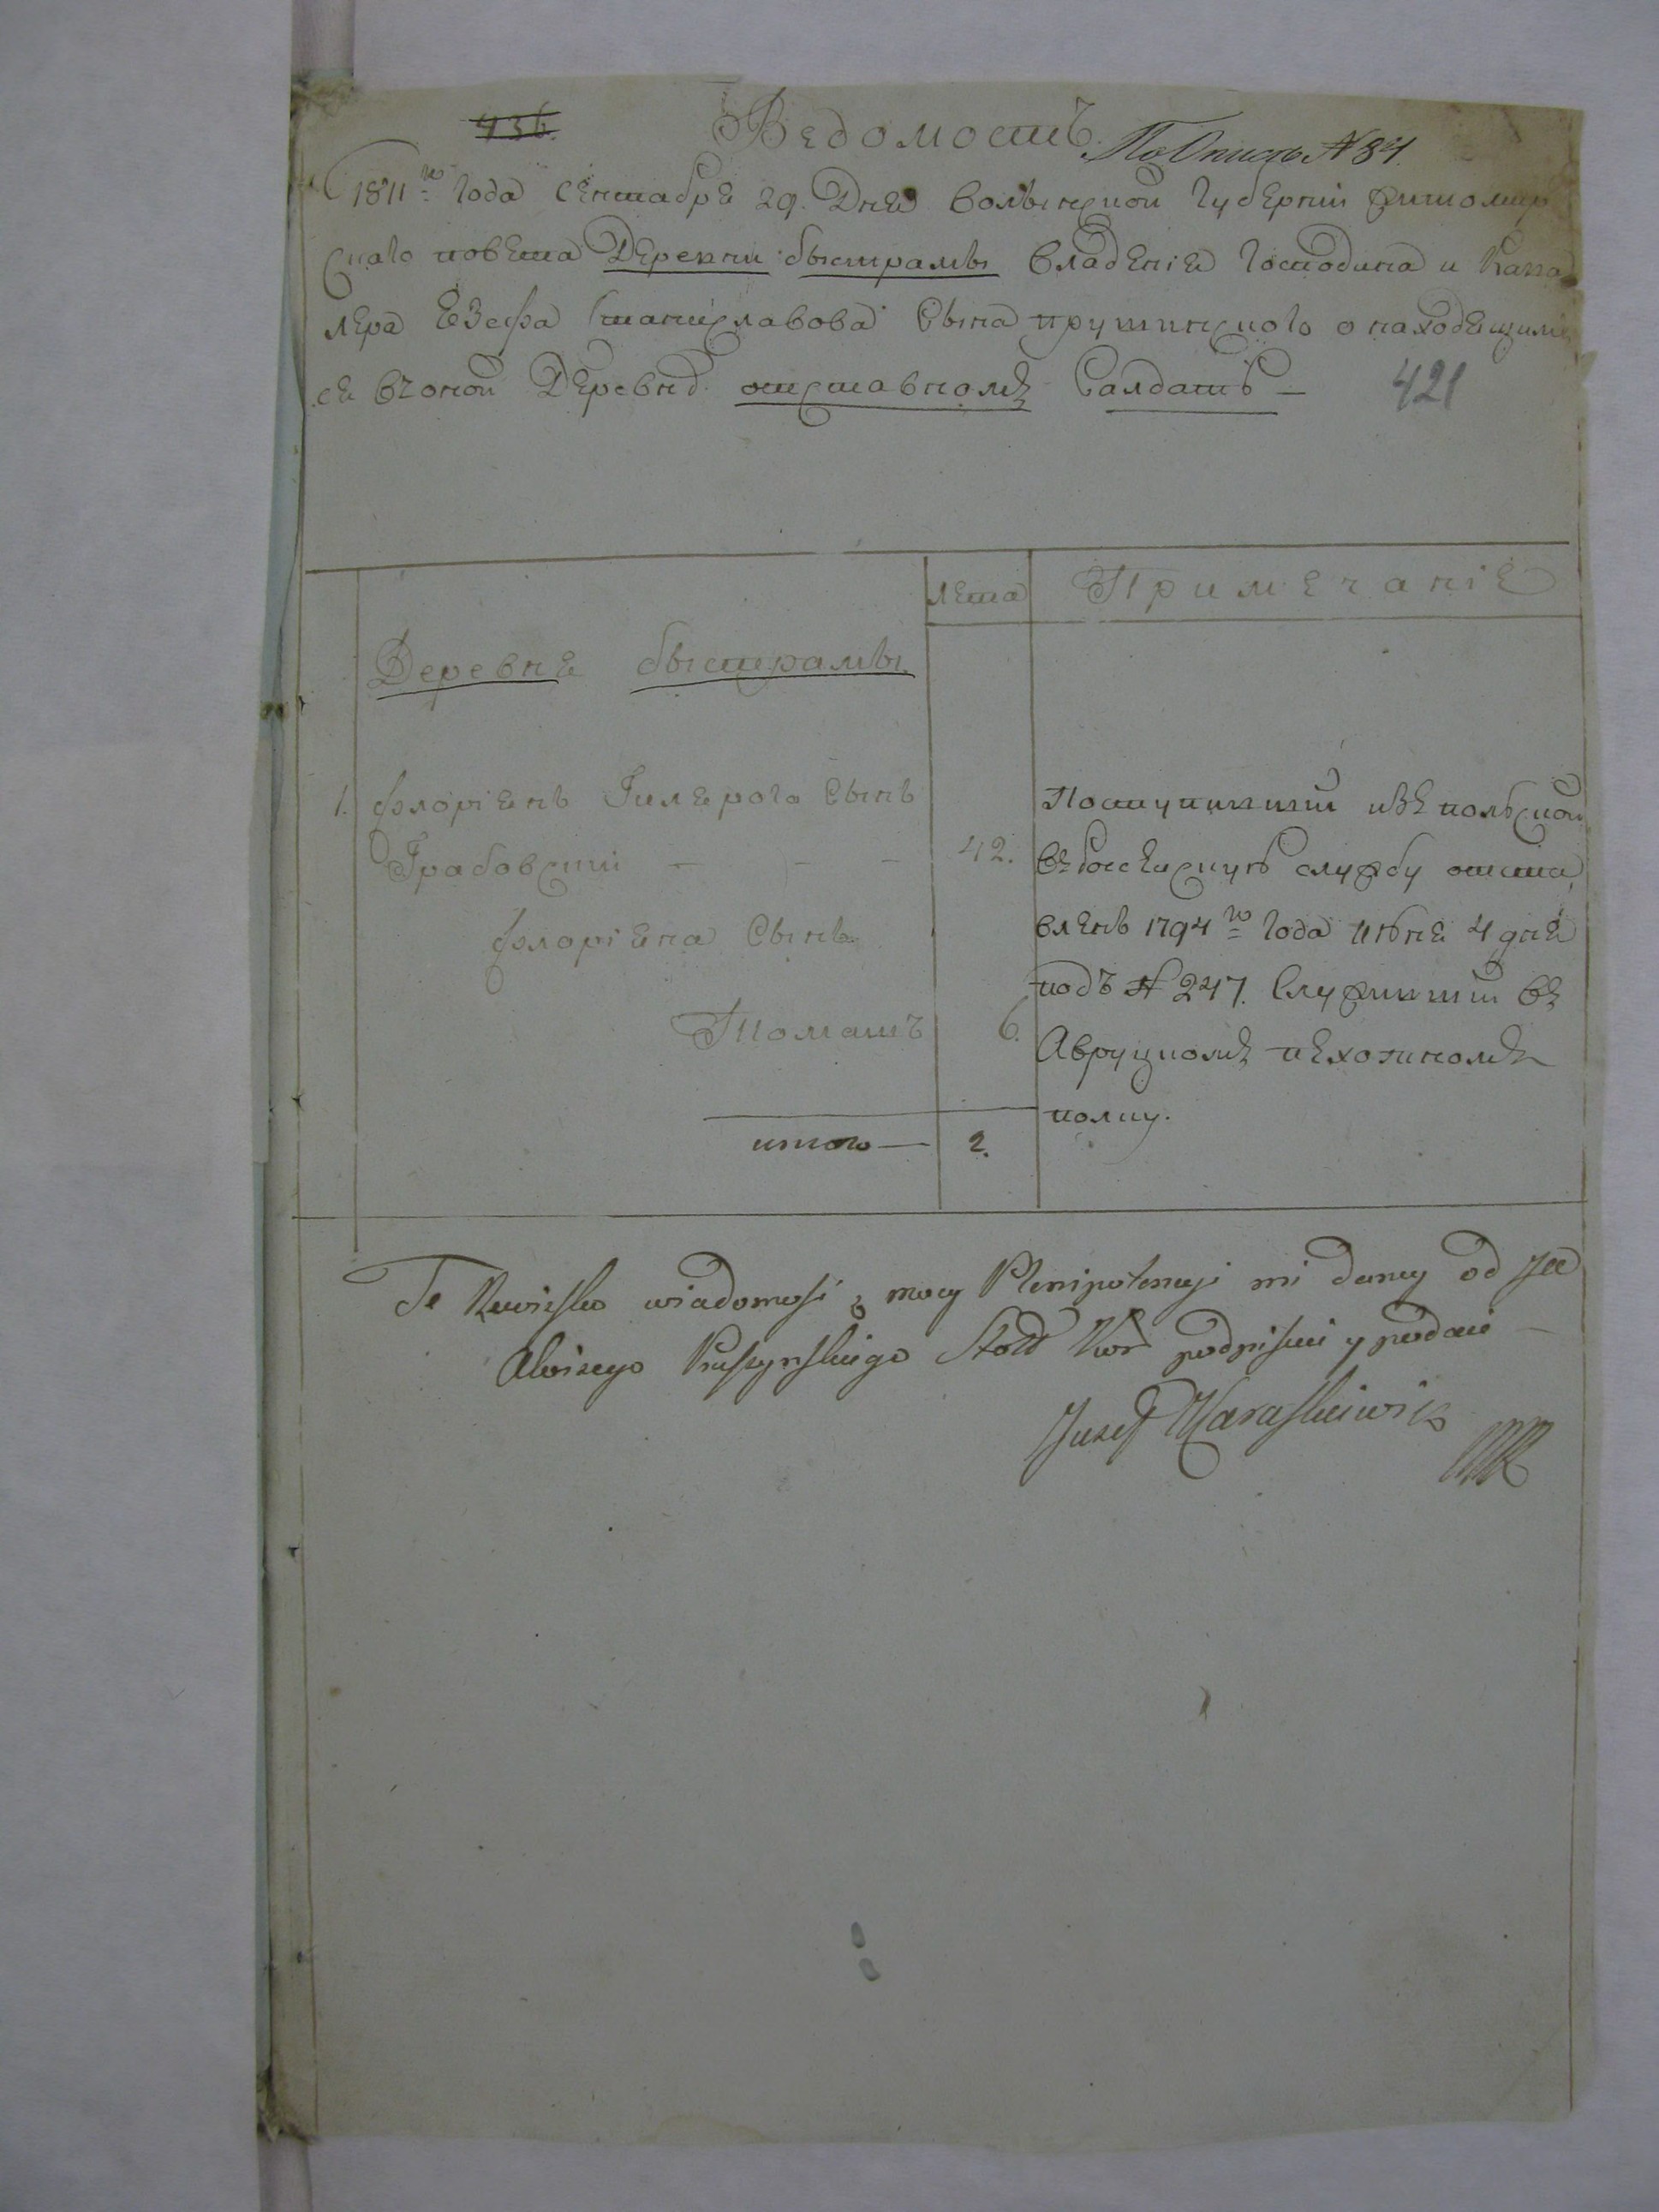 436.
Ведомость
По Описи № 84.
1811го года Сентабре 29. Дне волынской губернии Житомир
скаго повета Деревни быстрамы владение господина и Кава
лера Езефа Станиславова Сына прушинского о находещим
се въ оной Деревне отставномъ Салдатъ —
421
лета Примечание
Деревне быстрамы
1. флориенъ Гилерога Сынъ
Грабовский — — — 42.
флориена Сынъ
Томашъ 6.
итого — 2.
Поступивший изъ польской
въ Российскую службу отста
вленъ 1794го года июне 4 дне
подъ № 247. Служивший въ
Авруцкомъ пехотномъ
полку.
Te Rewizką wiadomość z mocy Plenipotencyi mi daney od JW
Aloizego Pruszyńskiego Stold Kor podpisuie y podaie —
Jusef Karaśkiewicz